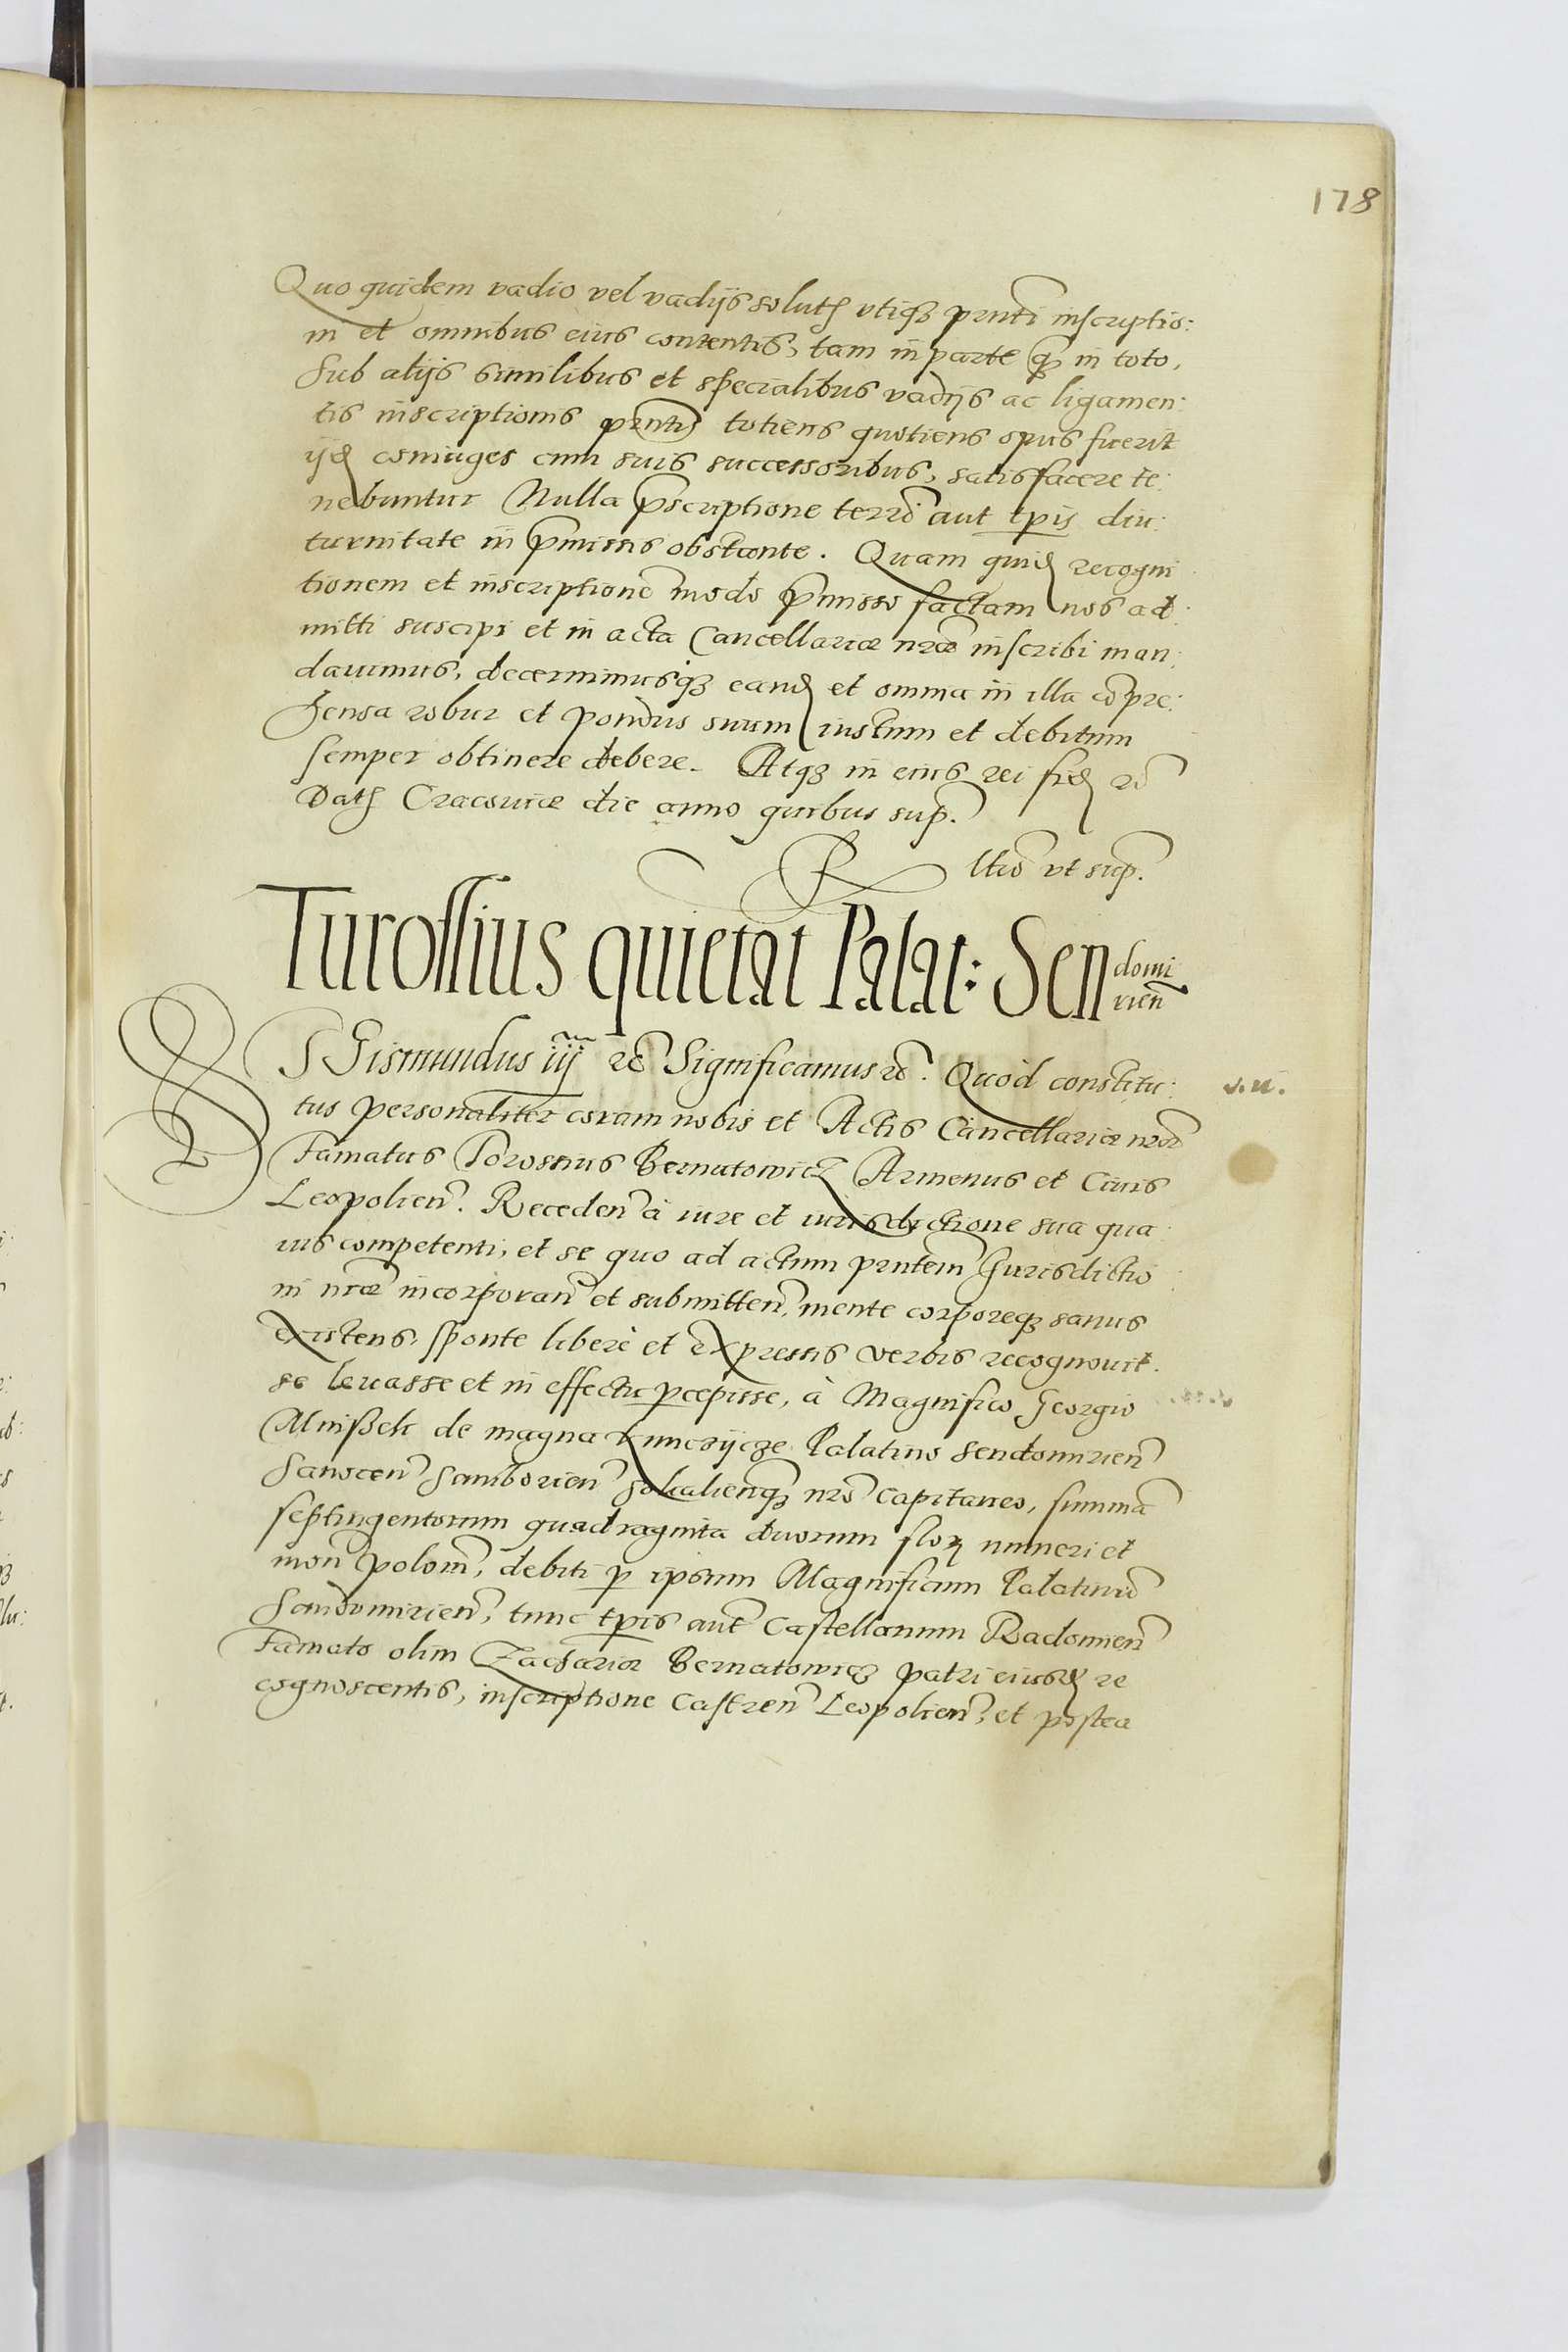 178
Quo quidem vadio vel vadijs solut͂ vtiqꝫ pr̃nti inscriptio:
ni et omnibus eius contentis, tam in parte qꝫ in toto,
sub alijs similibus et specialibus vadijs ac ligamen:
tis inscriptionis pr̃ntis totiens quotiens opus fuerit
ijd coniuges cum suis successoribus, satisfacere te:
nebuntur Nulla p̃scriptione terr̃ aut tp̃is diu:
turnitate in p̃missis obstante. Quam quid recogni
tionem et inscriptionẽ modo p̃misso factam nos ad:
mitti suscipi et in acta Cancellariæ nr̃æ inscribi man:
dauimus, decernimusqꝫ eand et omnia in illa cõpre:
hensa robur et pondus suum iustum et debitum
semper obtinere debere. Atqꝫ in eius rei fid ꝛc̃
Dat͂ Cracouiæ die anno quibus sup̃.
R̃ltio vt sup̃.
Turossius quietat Palat: Sendomi
rien̄
SGismundus iij ꝛc̃ Significamus ꝛc̃. Quòd constitu:
v. u.
tus personaliter coram nobis et Actis Cancellariæ nr̃æ
Famatus Torossius Bernatowicz Armenus et Ciuis
Leopolien̄. Receden̄ à iure et iurisdictione sua qua
uis competenti, et se quo ad actum pr̃ntem Jurisdictio
ni nr̃æ incorporan̄ et submitten̄, mente corporeqꝫ sanus
existens, sponte liberè et expressis verbis recognouit.
se leuasse et in effectu p̱cepisse, à Magnifico Georgio
Mnißek de magna Kunczijcze Palatino sendomirien̄
Sanocen̄ Samborien̄ Sokalien̄qꝫ nr̃o capitaneo, summã
septingentorum quadraginta duorum flor̃ numeri et
mon̄ polon̄, debiti p̱ ipsum Magnificum Palatinũ
Sandomirien̄, tunc tp̃is aut̃ Castellanum Radomien̄
Famato olim Zachariæ Bernatowicz patri eiusd re
cognoscentis, inscriptione Castren̄ Leopolien̄, et postea